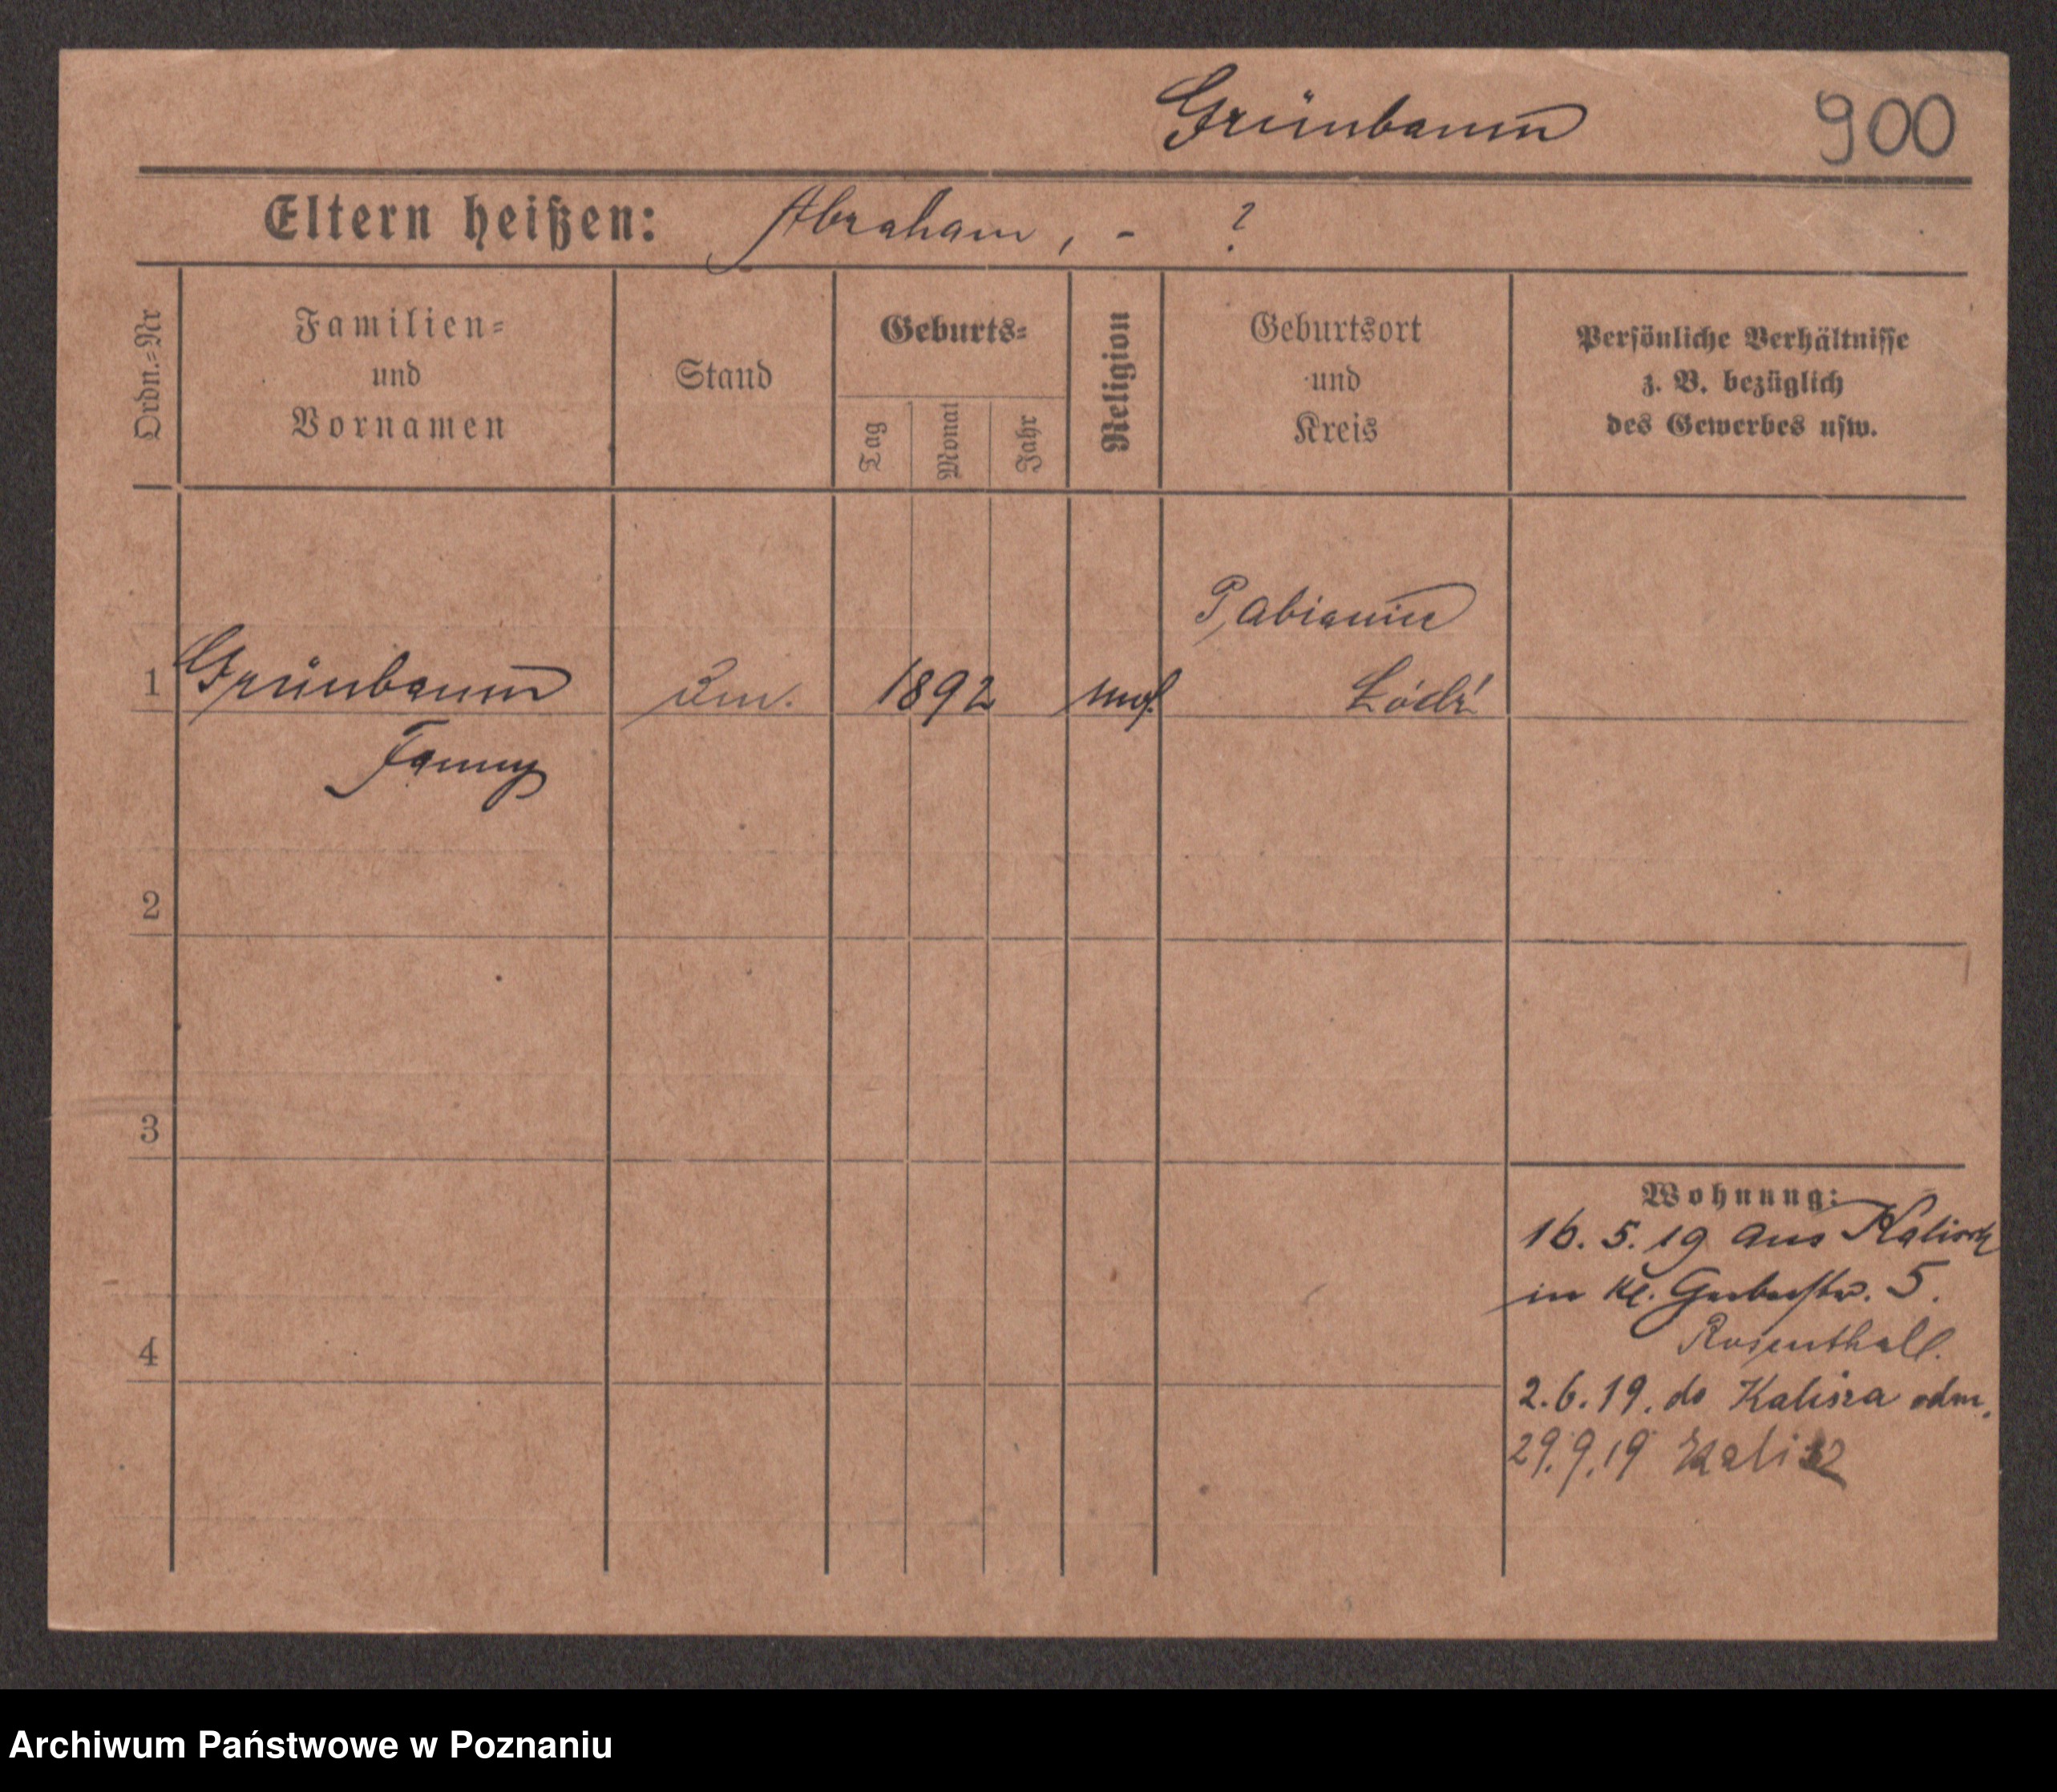 Grünbaum 900
Eltern heißen: Abraham, - ?
Ordn.=Nr
Familien=
und
Vornamen
Stand
Geburts=
Tag
Monat
Jahr
Religion
Geburtsort
und
Kreis
Persönliche Verhältnisse
z. B. bezüglich
des Gewerbes usw.
Pabianice
1 Grünbaum 1892 mos. Łódź
Fanny
2
3
4
Wohnung:
16. 5. 19 aus Kalisch
in Kl. Gerberstr. 5.
Rosenthall.
2.6.19. do Kalisza odm.
29.9.19 Kalisz
Archiwum Państwowe w Poznaniu